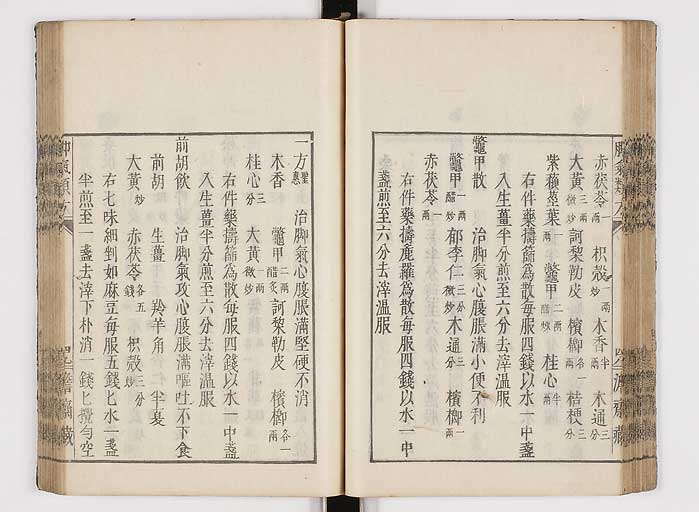 赤茯苓一兩 枳殼一兩炒 木香半兩 木通三分
大黃三兩微炒 訶黎勒皮 檳榔各一兩 桔梗三分
紫蘇莖葉一兩 鱉甲二兩醋炙 桂心半兩
右件藥擣篩為散每服四錢以水一中盞
入生薑半分煎至六分去滓溫服
鱉甲散 治脚氣心腹脹滿小便不利
鱉甲一兩醋炒 郁李仁三分微炒 木通三分 檳榔一兩
赤茯苓一兩
右件藥擣麄羅為散每服四錢以水一中
盞煎至六分去滓溫服
一方聖惠 治脚氣心腹脹滿堅硬不消
木香 鱉甲二兩醋炙 訶黎勒皮 檳榔各一兩
桂心三分 大黃一兩微炒
右件藥擣篩為散每服四錢以水一中盞
入生薑半分煎至六分去滓溫服
前胡飲 治脚氣攻心腹脹滿嘔吐不下食
前胡 生薑 羚羊角 半夏
大黃炒 赤茯苓各五錢 枳殼三分炒
右七味細剉如麻豆每服五錢匕水一盞
半煎至一盞去滓下朴消一錢匕攪勻空